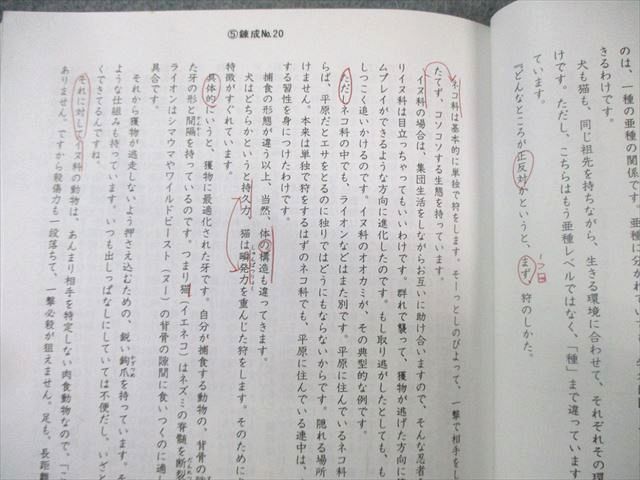 のは、一種の亜種の関係です。
きるわけです。
犬も猫も、同じ祖先を持ちながら、生きる環境に合わせて、それぞれその環
けです。ただし、こちらはもう亜種レベルではなく、「種」まで違っています
ています。
『どんなところが正反対かというと、まず、狩のしかた。
一つ目
⑤錬成No.20
ネコ科は基本的に単独で狩をします。そーっとしのびよって、一撃で相手をし
たてず、コソコソする生態を持っています。
イヌ科の場合は、集団生活をしながらお互いに助け合いますので、そんな忍者
りイヌ科は目立っちゃってもいいわけです。群れで襲って、獲物が逃げた方向に
ムプレイができるような方向に進化したのです。もし取り逃がしたとしても、も
しっこく追いかけるのです。イヌ科のオオカミが、その典型的な例です。
ただしネコ科の中でも、ライオンなどはまた別です。平原に住んでいるネコ科
らば、平原だとエサをとるのに独りではどうにもならないからです。隠れる場所
けません。本来は単独で狩をするはずのネコ科でも、平原に住んでいる連中は、
する習性を身につけたわけです。
捕食の形態が違う以上、当然、体の構造も違ってきます。
犬はどちらかというと持久力、猫は瞬発力を重んじた狩をします。そのために
特徴がすぐれています。
具体的にいうと、獲物に最適化された牙です。自分が捕食する動物の、背骨の
た牙の形と間隔を持っているのです。つまり猫(イエネコ)はネズミの脊髄を断裂
ライオンはシマウマやワイルドビースト(ヌー)の背骨の隙間に食いつくのに適し
具合です。
それから獲物が逃走しないよう押さえ込むための、鋭い鉤爪を持っています。そ
ような仕組みも持っています。いつも出しっぱなしにしていては不便だし、いざと
くできてるんですね。
それに対してイヌ科の動物は、あんまり相手を特定しない肉食動物なので、「こ
ありません。ですから殺傷力も一段落ちて、一撃必殺が狙えません。足も、長距離